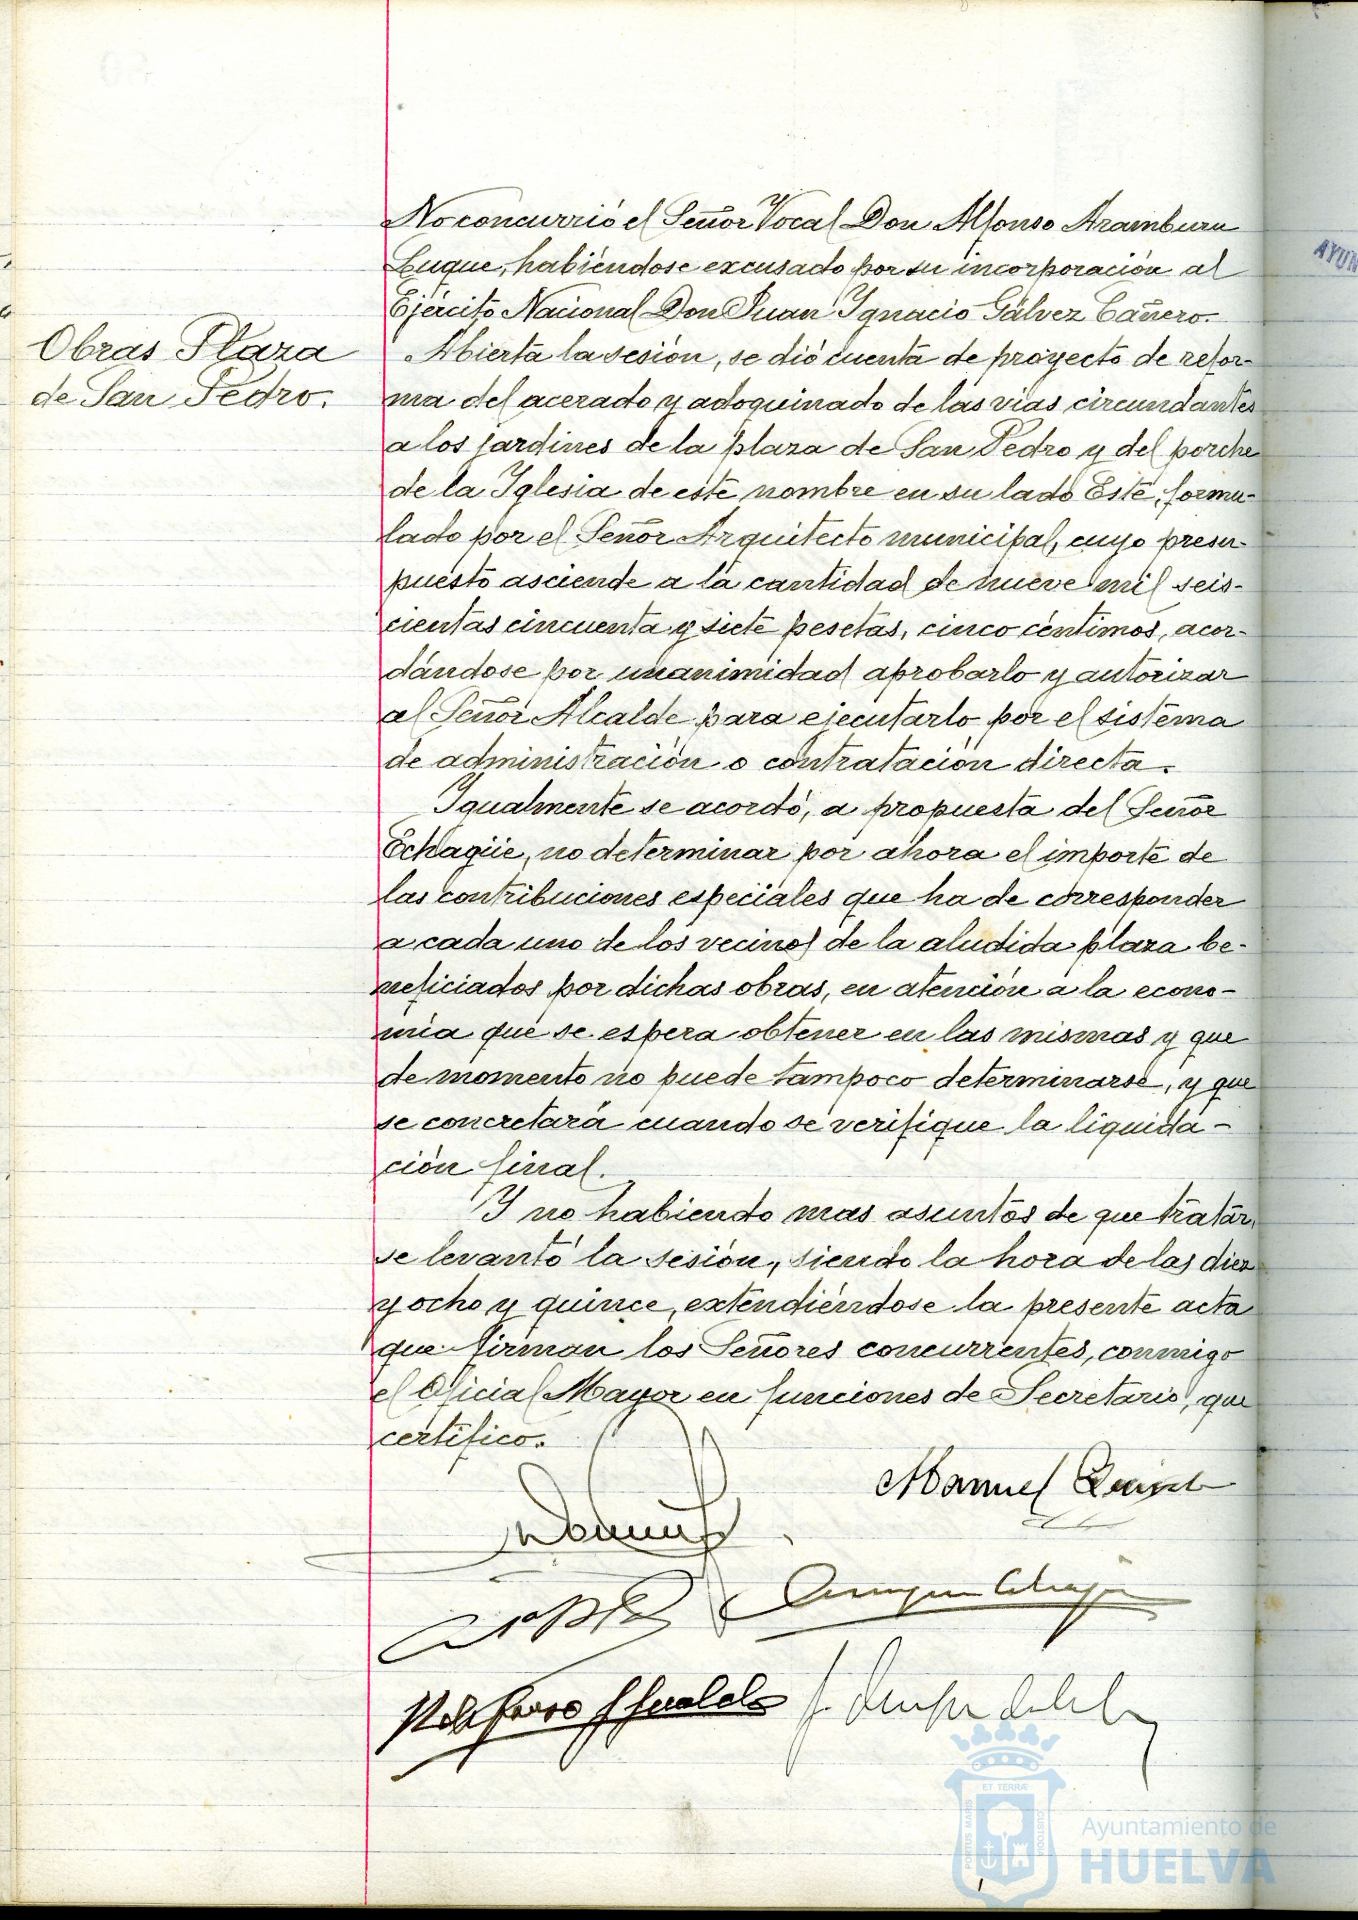 No concurrió el Señor Vocal Don Alfonso Aramburu
Luque, habiéndose excusado por su incorporación al
Ejército Nacional Don Juan Ignacio Gálvez Cañero.
Obras Plaza
de San Pedro.
Abierta la sesión, se dió cuenta de proyecto de refor-
ma del acerado y adoquinado de las vías circundantes
a los jardines de la plaza de San Pedro y del porche
de la Iglesia de este nombre en su lado Este, formu-
lado por el Señor Arquitecto municipal, cuyo presu-
puesto asciende a la cantidad de nueve mil seis-
cientas cincuenta y siete pesetas, cinco céntimos, acor-
dándose por unanimidad aprobarlo y autorizar
al Señor Alcalde para ejecutarlo por el sistema
de administración o contratación directa.
Igualmente se acordó, a propuesta del Señor
Echagüe, no determinar por ahora el importe de
las contribuciones especiales que ha de corresponder
a cada uno de los vecinos de la aludida plaza be-
neficiados por dichas obras, en atención a la econo-
mía que se espera obtener en las mismas y que
de momento no puede tampoco determinarse, y que
se concretará cuando se verifique la liquida-
ción final.
Y no habiendo mas asuntos de que tratar,
se levantó la sesión, siendo la hora de las diez
y ocho y quince, extendiéndose la presente acta
que firman los Señores concurrentes, conmigo
el Oficial Mayor en funciones de Secretario, que
certifico.
Manuel
ET TERRÆ
PORTUS MARIS
CUSTODIA
Ayuntamiento de
HUELVA
AYUN